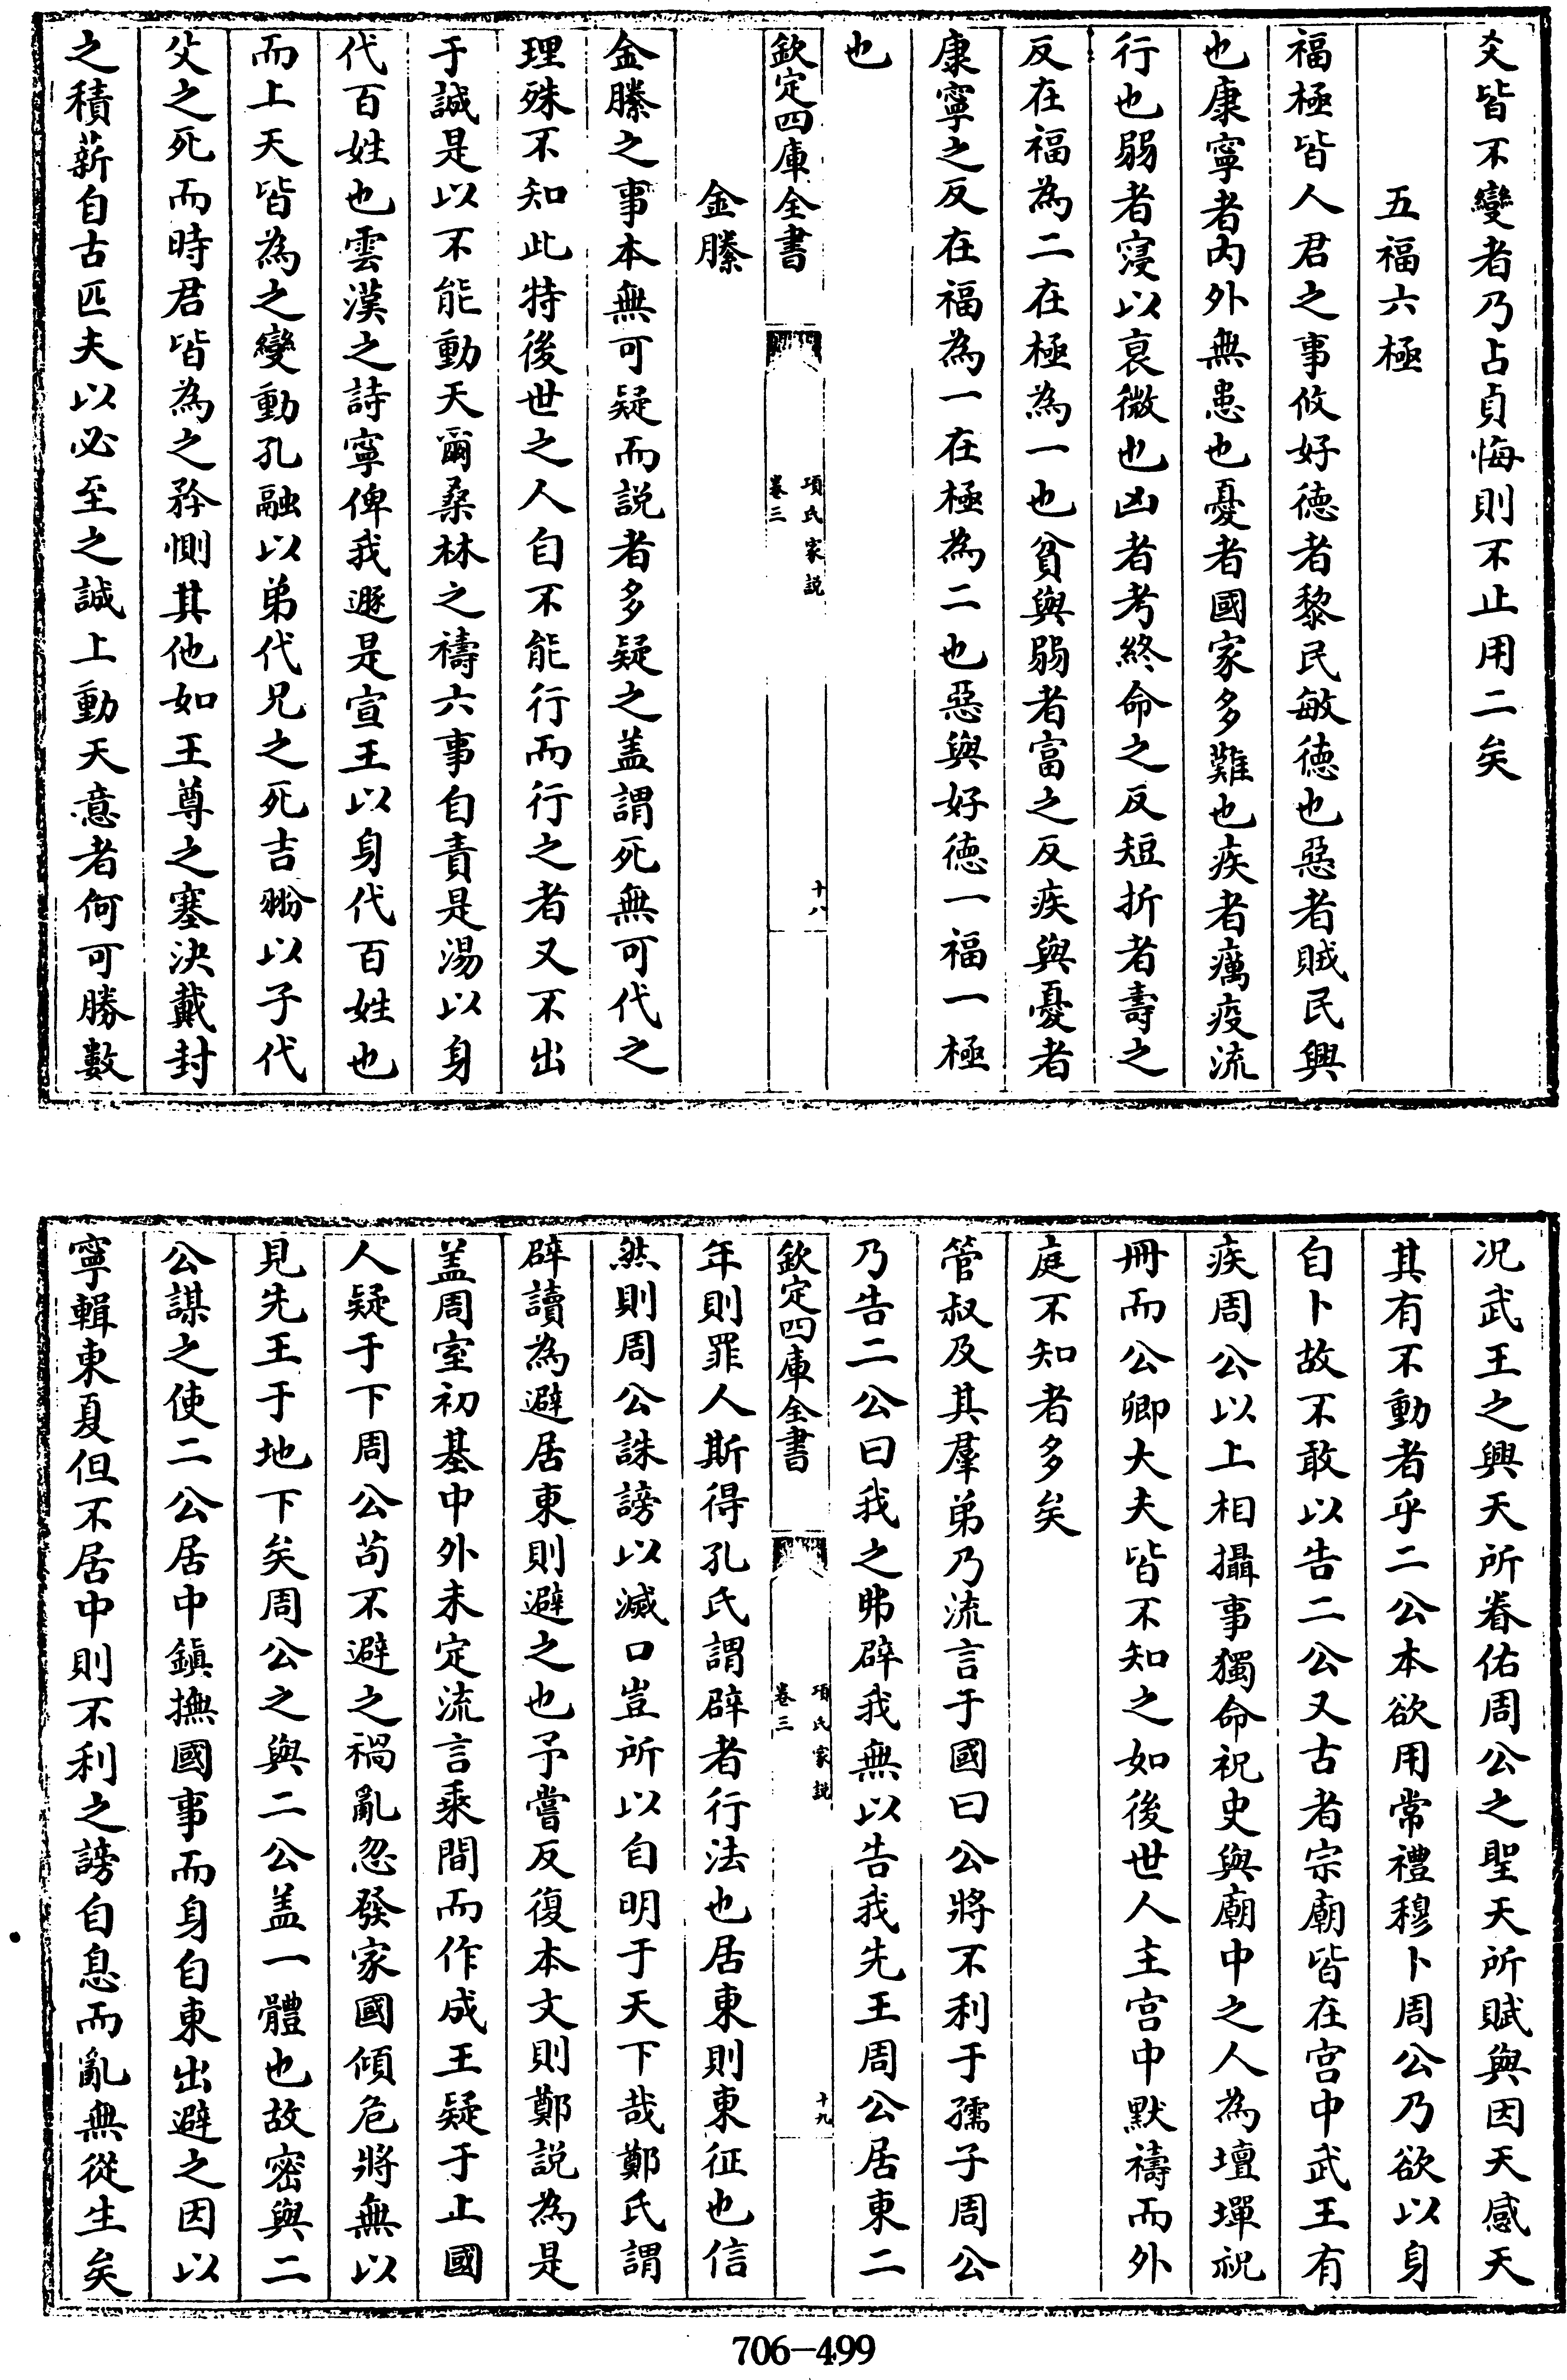 爻皆不變者乃占貞悔則不止用二矣
五福六極
福極皆人君之事攸好徳者黎民敏徳也惡者賊民興
也康寧者内外無患也憂者國家多難也疾者癘疫流
行也弱者寖以衰微也凶者考終命之反短折者壽之
反在福為二在極為一也貧與弱者富之反疾與憂者
康寧之反在福為一在極為二也惡與好徳一福一極
也
欽定四庫全書
項氏家説
卷三
十八
金縢
金縢之事本無可疑而説者多疑之盖謂死無可代之
理殊不知此特後世之人自不能行而行之者又不出
于誠是以不能動天爾桑林之禱六事自責是湯以身
代百姓也雲漢之詩寧俾我遯是宣王以身代百姓也
而上天皆為之變動孔融以弟代兄之死吉翂以子代
父之死而時君皆為之矜惻其他如王尊之塞決戴封
之積薪自古匹夫以必至之誠上動天意者何可勝數
况武王之興天所眷佑周公之聖天所賦與因天感天
其有不動者乎二公本欲用常禮穆卜周公乃欲以身
自卜故不敢以告二公又古者宗廟皆在宫中武王有
疾周公以上相攝事獨命祝史與廟中之人為壇墠祝
冊而公卿大夫皆不知之如後世人主宫中默禱而外
庭不知者多矣
管叔及其羣弟乃流言于國曰公將不利于孺子周公
乃告二公曰我之弗辟我無以告我先王周公居東二
欽定四庫全書
項氏家説
卷三
十九
年則罪人斯得孔氏謂辟者行法也居東則東征也信
然則周公誅謗以滅口豈所以自明于天下哉鄭氏謂
辟讀為避居東則避之也予嘗反復本文則鄭説為是
盖周室初基中外未定流言乘間而作成王疑于上國
人疑于下周公苟不避之禍亂忽發家國傾危將無以
見先王于地下矣周公之與二公盖一體也故密與二
公謀之使二公居中鎮撫國事而身自東出避之因以
寧輯東夏但不居中則不利之謗自息而亂無從生矣
706-499